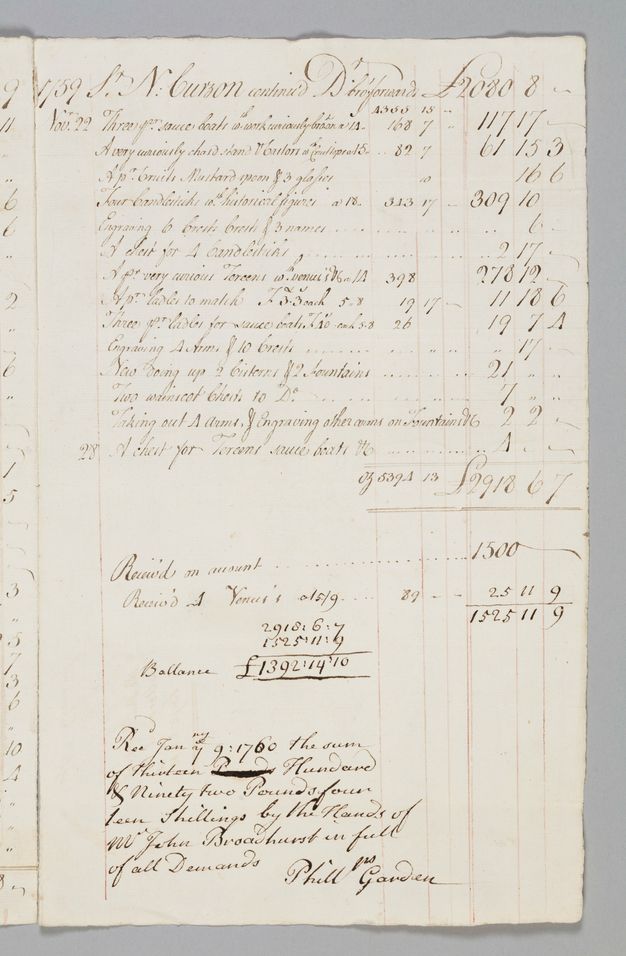 1759 Sr. N: Curzon continued Dr. bro't forwards £2080 8 "
4555 15 "
Novr. 22 Three pr. sauce boats wth. work curiously a 14 - 168 7 " 117 17 "
A very curiously chas'd stand & Castors wth. a 15 - 82 7 61 15 3
A pr. Cruits Mustard spoon & 3 glasses 10 16 6
Four Candlesticks wth. historical figures a 18 - 343 17 - 309 10
Engraving 6 Crests Crest & 3 names " 6 "
A chest for 4 Candlesticks 2 17 "
A pr. very curious Toreens wth. Venus's &c a 14 398 278 12 "
A pr. ladles to match F £3 each 5-8 19 17 - 11 18 6
Three pr. ladles for sauce boats F 40 each 5-8 26 19 7 4
Engraving 4 Arms & 10 Crests " " " 17 "
New doing up 2 Cisterns & 2 Fountains 21 " "
Two wainscot Chests to Do. 7 " "
Taking out 4 arms, & Engraving other arms on Fountains &c 2 2 "
28 A chest for Toreens sauce boats &c 4 " "
oz 5394 13 £2918 6 7
Receiv'd on account 1500
Receiv'd 4 Venus's a 5/9 89 - - 25 11 9
1525 11 9
2918:6:7
1525:11:9
Ballance £1392:14:10
Recd. Janmy ye 9: 1760 the sum
of thirteen Hunderd
& Ninety two Pounds four
teen Shillings by the Hands of
Mr. John Broadhurst in full
of all Demands
Phillips Garden
9
11
"
6
6
2
"
6
1
5
3
"
5
7
3
6
10
4
"
"
8